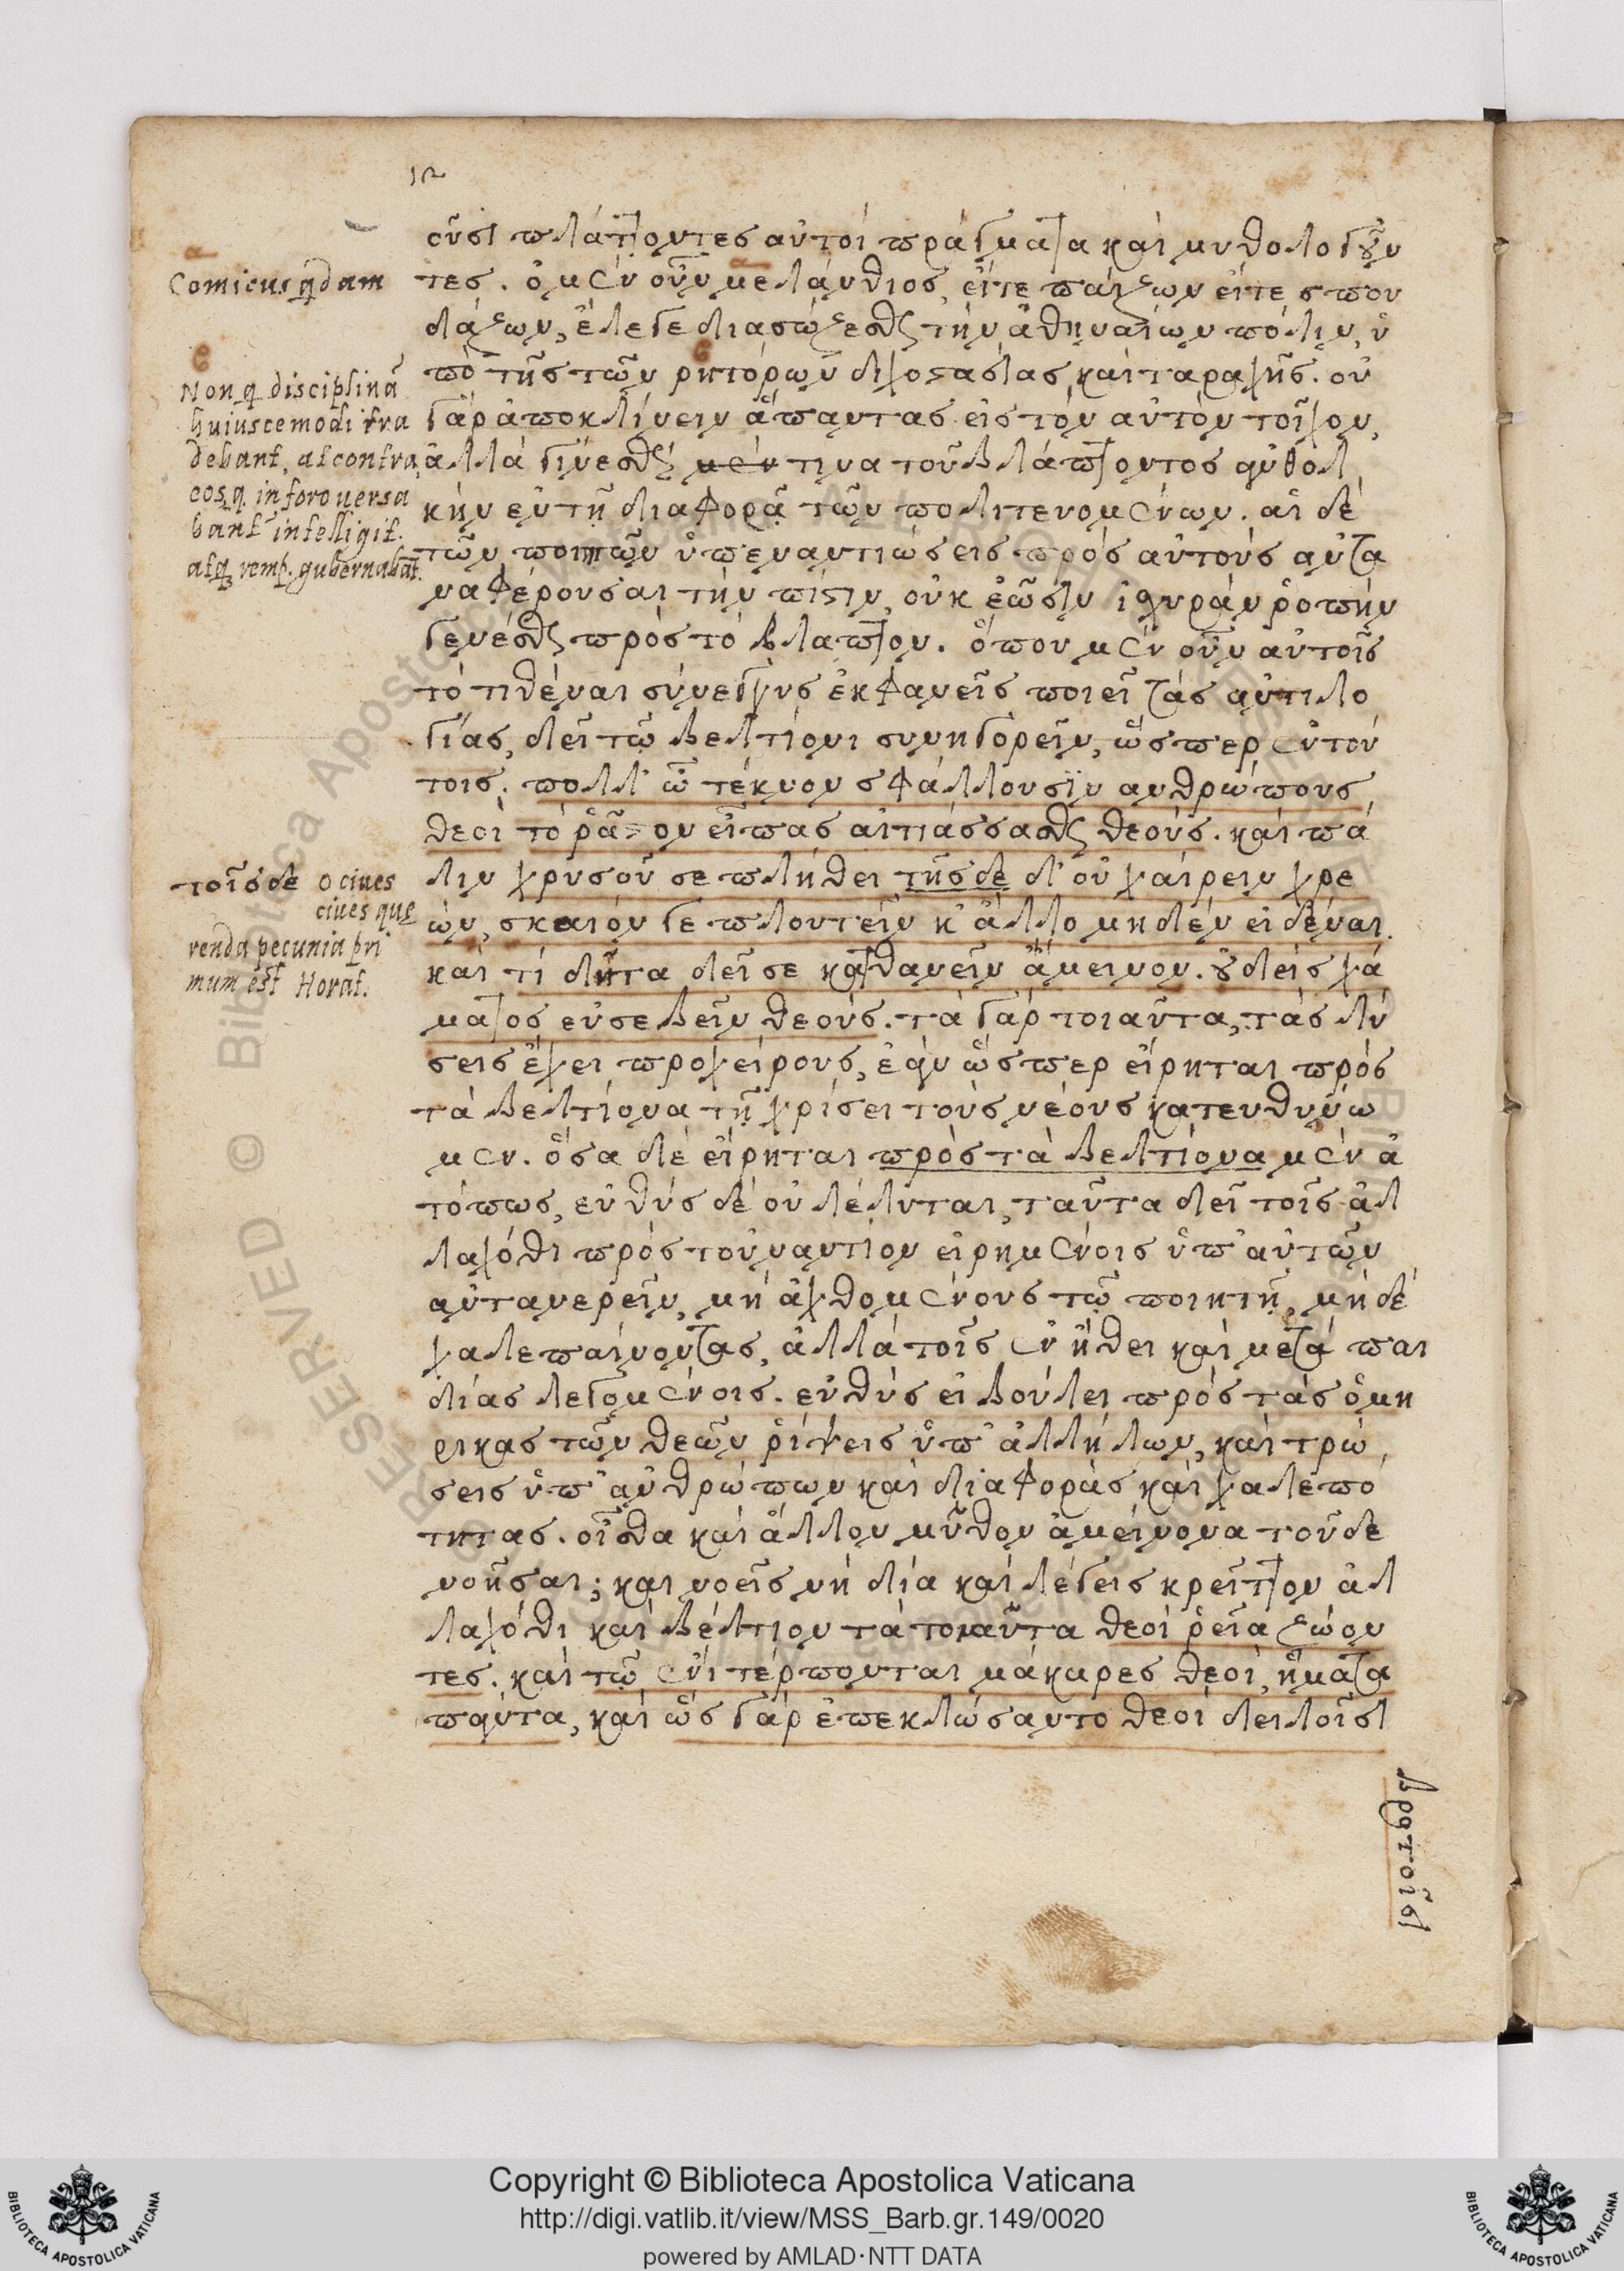 ιβ
οῦσι πλάττοντες αὐτοὶ πράγματα καὶ μυθολογοῦν
τες. ὁ μὲν οὖν μελάνθιος, εἴτε παίζων εἴτε σπου
δάζων, ἔλεγε διασώζεσθαι τὴν ἀθηναίων πόλιν, ὑ
πὸ τῆς τῶν ρητόρων διχοστασίας καὶ ταραχῆς. οὐ
γὰρ ἀποκλίνειν ἅπαντας εἰς τὸν αὐτὸν τοῖχον,
ἀλλὰ γίνεσθαί μέν τινα τοῦ βλάπτοντος ἀνθολ
κὴν ἐν τῇ διαφορᾷ τῶν πολιτευομένων. αἱ δὲ
τῶν ποιητῶν ὑπεναντιώσεις πρὸς αὐτοὺς ἀντα
ναφέρουσαι τὴν πίστιν, οὐκ ἐῶσιν ἰσχυρὰν ῥοπὴν
γενέσθαι πρὸς τὸ βλάπτον. ὅπου μὲν οὖν αὐτοῖς
τὸ τιθέναι σύνεγγυς ἐκφανεῖς ποιεῖ τὰς ἀντιλο
γίας, δεῖ τῷ βελτίονι συνηγορεῖν, ὥσπερ ἐν τού
τοις. πολλ' ὦ τέκνον σφάλλουσιν ἀνθρώπους
θεοὶ τὸ ῥᾷον εἶπας αἰτιάσσασθαι θεούς. καὶ πά
λιν χρυσοῦ σε πλήθει τῆσδε δ' οὐ χαίρειν χρε
ών, σκαιόν γε πλουτεῖν κ' ἄλλο μηδὲν εἰδέναι.
καὶ τί δῆτα δεῖ σε κατθανεῖν ἄμεινον. οὐδεὶς κά
ματος εὐσεβεῖν θεούς. τὰ γὰρ τοιαῦτα, τὰς λύ
σεις ἔχει προχείρους, ἐὰν ὥσπερ εἴρηται πρὸς
τὰ βελτίονα τῇ κρίσει τοὺς νέους κατευθύνω
μεν. ὅσα δὲ εἴρηται πρὸς τὰ βελτίονα μὲν ἀ
τόπως, εὐθὺς δὲ οὐ λέλυται, ταῦτα δεῖ τοῖς ἀλ
λαχόθι πρὸς τοὐναντίον εἰρημένοις ὑπ' αὐτῶν
ἀνταναιρεῖν, μὴ ἀχθομένους τῷ ποιητῇ, μηδὲ
χαλεπαίνοντας, ἀλλὰ τοῖς ἐν ἤθει καὶ μετὰ παι
διᾶς λεγομένοις. εὐθὺς εἰ βούλει πρὸς τὰς ὁμη
ρικὰς τῶν θεῶν ῥίψεις ὑπ' ἀλλήλων, καὶ τρώ
σεις ὑπ' ἀνθρώπων καὶ διαφορὰς καὶ χαλεπό
τητας. οἶσθα καὶ ἄλλον μῦθον ἀμείνονα τοῦδε
νοῆσαι; καὶ νοεῖς νὴ δία καὶ λέγεις κρεῖττον ἀλ
λαχόθι καὶ βέλτιον τὰ τοιαῦτα θεοὶ ῥεῖα ζώον
τες. καὶ τῷ ἔνι τέρπονται μάκαρες θεοί, ἤματα
πάντα, καὶ ὣς γὰρ ἐπεκλώσαντο θεοὶ δειλοῖσι
βροτοῖσι
a
Comicus quidam
6
Non q disciplinā
huiuscemodi tra
debant, at contra
eos q. in foro uersa
bant̃ intelligit.
atq; remp. gubernabāt.
τοῖσδε o ciues
ciues que
renda pecunia pri
mum est Horat.
RESERVED © Biblioteca Apostolica
Copyright © Biblioteca Apostolica Vaticana
http://digi.vatlib.it/view/MSS_Barb.gr.149/0020
powered by AMLAD·NTT DATA
BIBLIOTECA APOSTOLICA VATICANA
BIBLIOTECA APOSTOLICA VATICANA